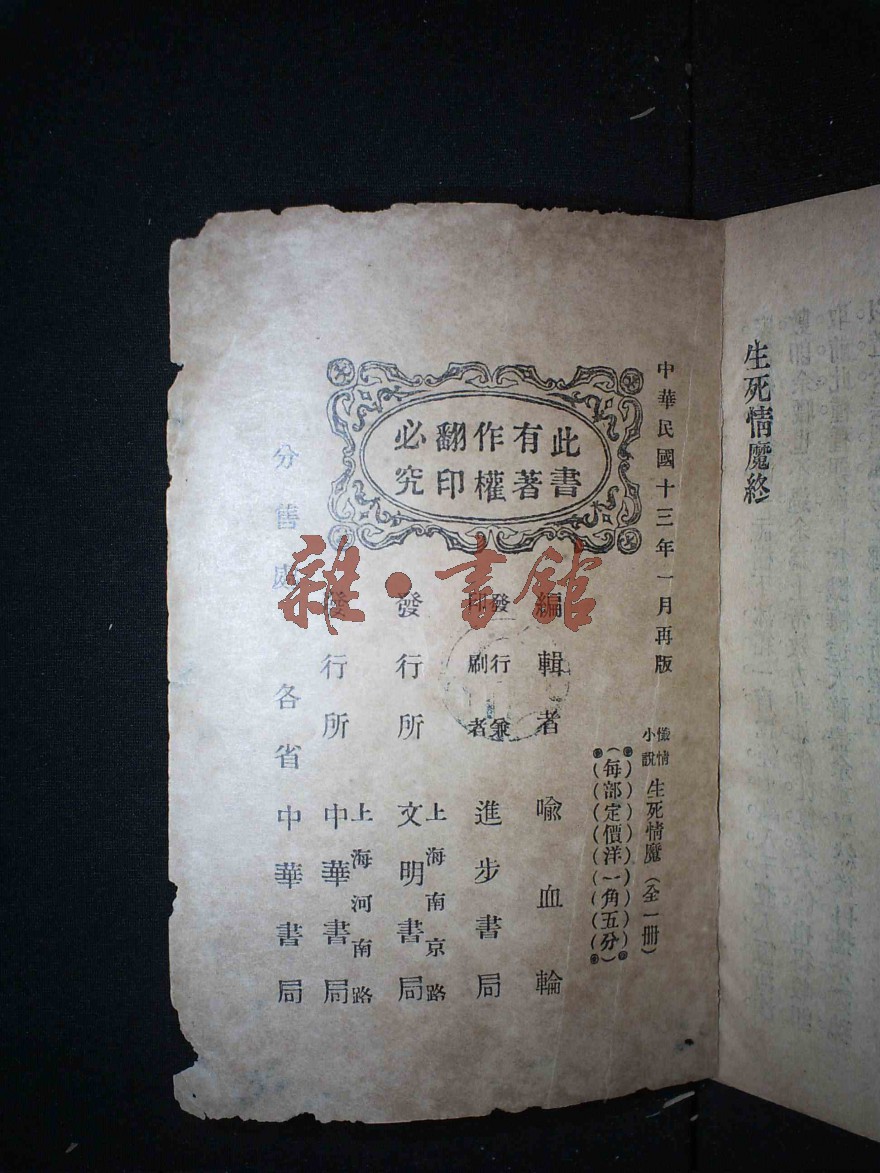 生死情魔終
中華民國十三年一月再版
慘情小說 生死情魔（全一冊）
（每部定價洋一角五分）
此書有著作權翻印必究
編輯者 喻血輪
發行兼印刷者 進步書局
發行所 上海南京路 文明書局
發行所 上海河南路 中華書局
分售處 各省中華書局
雜·書館